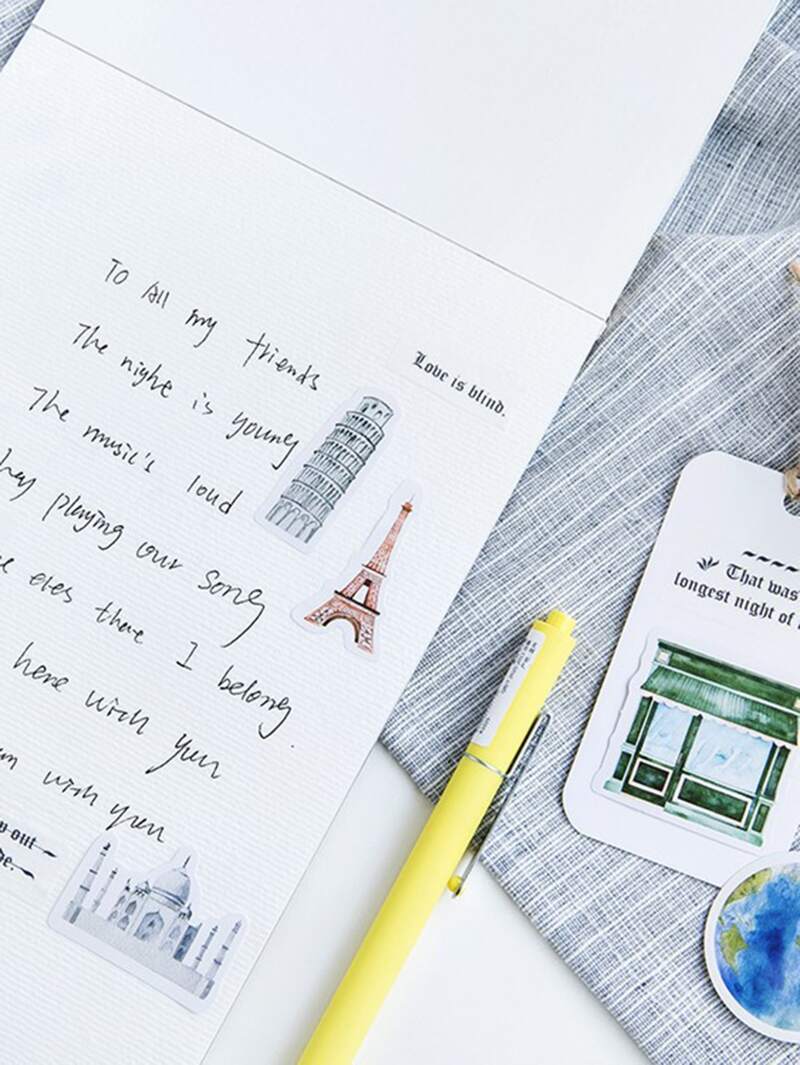 To All my friends
The night is young
The music's loud
hey playing our song
eres there I belong.
here with yuu
m with yuu
Love is blind.
out
That was
longest night of